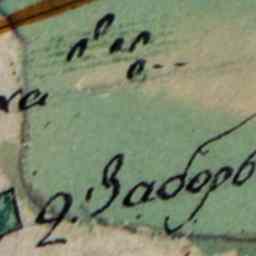 ха
д. Заборь